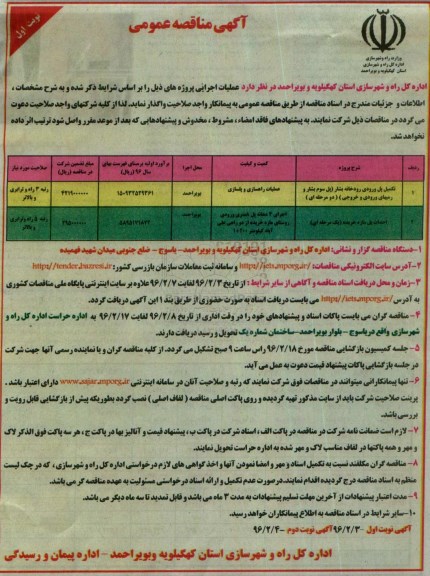 آگهی مناقصه عمومی
نوبت اول
وزارت راه و شهرسازی
اداره کل راه و شهرسازی
استان کهگیلویه و بویراحمد
اداره کل راه و شهرسازی استان کهگیلویه و بویراحمد در نظر دارد عملیات اجرایی پروژه های ذیل را بر اساس شرایط ذکر شده و به شرح مشخصات ،
اطلاعات و جزئیات مندرج در اسناد مناقصه از طریق مناقصه عمومی به پیمانکار واجد صلاحیت واگذار نماید. لذا از کلیه شرکتهای واجد صلاحیت دعوت
می گردد در مناقصات ذیل شرکت نمایند. به پیشنهادهای فاقد امضاء ، مشروط ، مخدوش و پیشنهادهایی که بعد از موعد مقرر واصل شود ترتیب اثر داده
نخواهد شد.
ردیف شرح پروژه کمیت و کیفیت محل اجرا برآورد اولیه بر مبنای فهرست بهای سال ۹۶ (ریال) مبلغ تضمین شرکت در مناقصه (ریال) صلاحیت مورد نیاز
۱ تکمیل پل ورودی رودخانه بشار (پل سوم بشار و رمپهای ورودی و خروجی ) ( دو مرحله ای) عملیات راهسازی و پلسازی بویراحمد رتبه ۳ راه و ترابری و بالاتر
۲ بویراحمد رتبه ۵ راه و ترابری و بالاتر
۱-دستگاه مناقصه گزار و نشانی: اداره کل راه و شهرسازی استان کهگیلویه و بویراحمد - یاسوج - ضلع جنوبی میدان شهید فهمیده
۲-آدرس سایت الکترونیکی مناقصات: http://iets.mporg.ir/ و سامانه ثبت معاملات سازمان بازرسی کشور: http://tender.bazresi.ir
۳- زمان و محل دریافت اسناد مناقصه و آگاهی از سایر شرایط : از تاریخ ۹۶/۲/۳ لغایت ۹۶/۲/۷ علاوه بر سایت اینترنتی پایگاه ملی مناقصات کشوری
به آدرس http://iets.mporg.ir/ می بایست دریافت اسناد به صورت حضوری از طریق بند ۱ این آگهی دریافت گردد.
۴- مناقصه گران می بایست پاکات اسناد و پیشنهادهای خود را در وقت اداری از تاریخ ۹۶/۲/۸ لغایت ۹۶/۲/۱۷ به اداره حراست اداره کل راه و
شهرسازی واقع در یاسوج - بلوار بویراحمد-ساختمان شماره یک تحویل و رسید دریافت دارند.
۵- جلسه کمیسیون بازگشایی مناقصه مورخ ۹۶/۲/۱۸ راس ساعت ۹ صبح تشکیل می گردد. از کلیه مناقصه گران و یا نماینده رسمی آنها جهت شرکت
در جلسه بازگشایی پاکات پیشنهاد قیمت دعوت به عمل می آید.
۶- تنها پیمانکارانی میتوانند در مناقصات فوق شرکت نمایند که رتبه و صلاحیت آنان در سامانه اینترنتی www.sajar.mporg.ir دارای اعتبار باشد .
پرینت صلاحیت شرکت باید از سایت مذکور تهیه گردیده و روی پاکت اصلی مناقصه ( لفاف اصلی ) نصب گردد بطوریکه پیش از بازگشایی قابل رویت و
بررسی باشد.
۷- لازم است ضمانت نامه شرکت در مناقصه در پاکت الف ، اسناد شرکت در پاکت ب ، پیشنهاد قیمت و آنالیز بها در پاکت ج ، هر سه پاکت فوق الذکر لاک
و مهر و همه پاکتها در لفاف مناسب لاک و مهر شده به اداره حراست تحویل نمایند.
۸- مناقصه گران مکلفند نسبت به تکمیل اسناد و مهر و امضا نمودن آنها و اخذ گواهی های لازم درخواستی اداره کل راه و شهرسازی ، که در چک لیست
منظم به اسناد مناقصه درج گردیده اقدام نمایند.درصورت عدم تکمیل و ارائه اسناد درخواستی مسئولیت به عهده مناقصه گر می باشد.
۹- مدت اعتبار پیشنهادات از آخرین مهلت تسلیم پیشنهادات به مدت ۳ ماه می باشد و قابل تمدید تا سه ماه دیگر می باشد.
۱۰-سایر شرایط در اسناد مناقصه به اطلاع پیمانکاران خواهد رسید.
آگهی نوبت اول -۹۶/۲/۳ آگهی نوبت دوم -۹۶/۲/۴
اداره کل راه و شهرسازی استان کهگیلویه وبویراحمد - اداره پیمان و رسیدگی